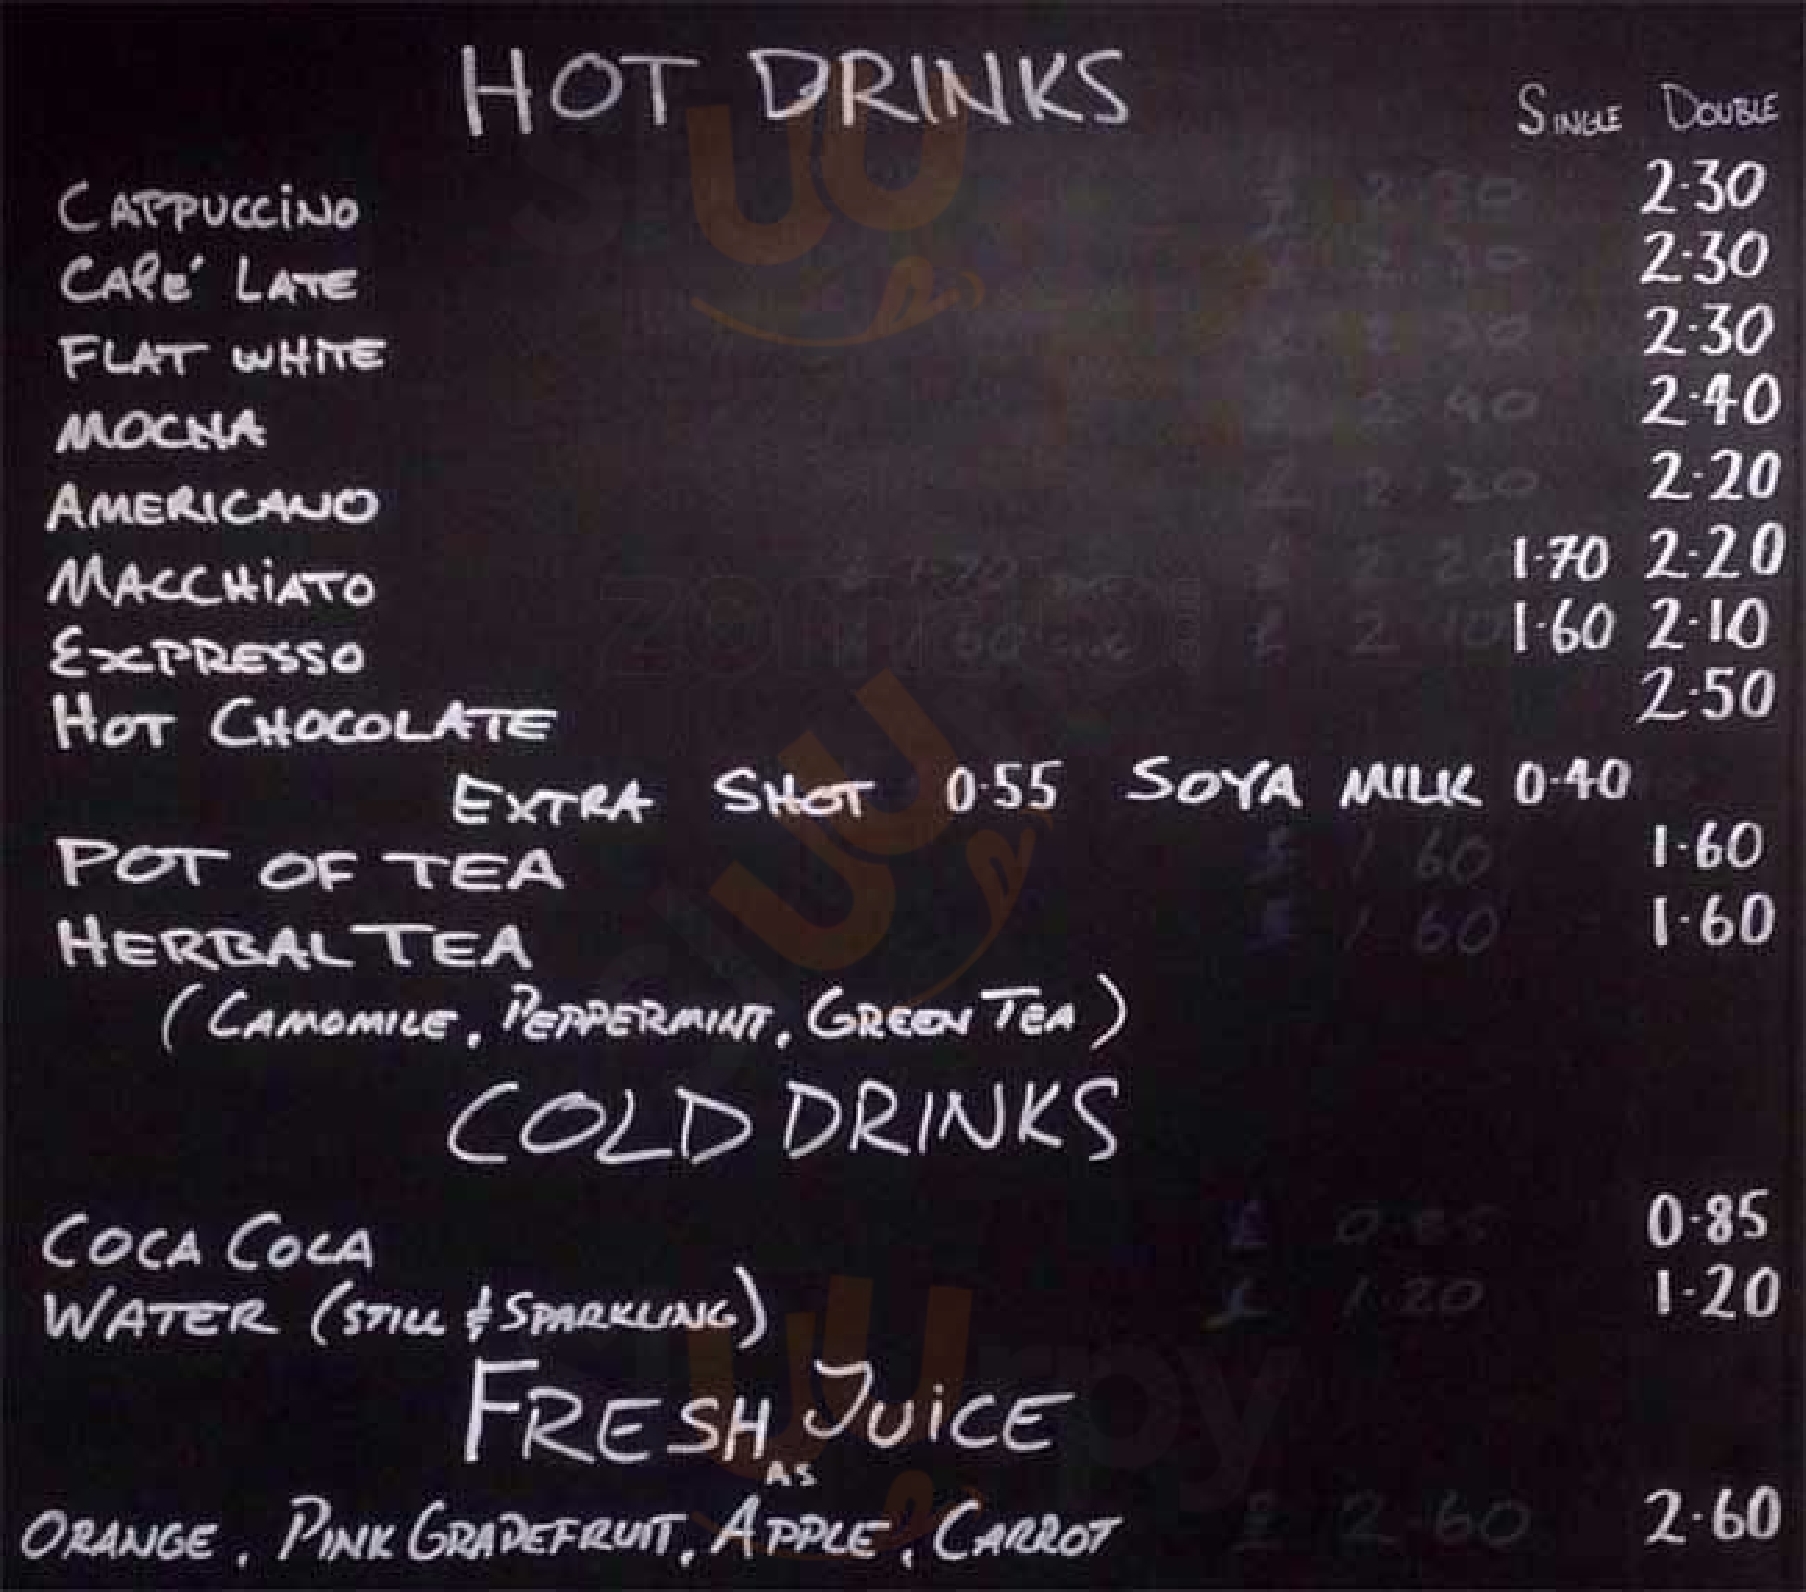 HOT DRINKS
SINGLE DOUBLE
CAPPUCCINO 2.30
CAFÉ LATE 2.30
FLAT WHITE 2.30
MOCHA 2.40
AMERICANO 2.20
MACCHIATO 1.70 2.20
EXPRESSO 1.60 2.10
HOT CHOCOLATE 2.50
EXTRA SHOT 0.55 SOYA MILK 0.40
POT OF TEA 1.60
HERBAL TEA 1.60
(CAMOMILE, PEPPERMINT, GREEN TEA)
COLD DRINKS
COCA COLA 0.85
WATER (STILL & SPARKLING) 1.20
FRESH JUICE
AS
ORANGE, PINK GRAPEFRUIT, APPLE, CARROT 2.60